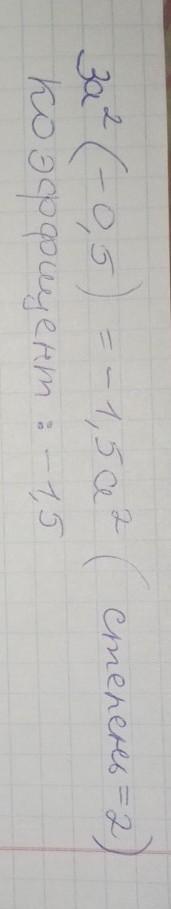 3a² (-0,5) = -1,5a² ( степень = 2)
Коэффициент : -1,5